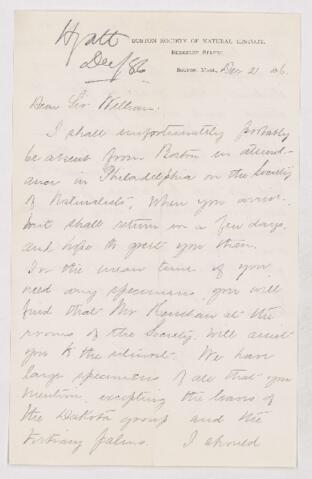 Hyatt
Dec/86
BOSTON SOCIETY OF NATURAL HISTORY,
BERKELEY STREET,
BOSTON, MASS., Dec 21 1886.
Dear Sir William.
I shall unfortunately probably
be absent from Boston in attend-
ance in Philadelphia on the Society
of Naturalists, when you arrive
but shall return in a few days
and hope to greet you then.
In the mean time if you
need any specimens you will
find that Mr at the
rooms of the Society, will assist
you to the utmost. We have
large specimens of all that you
mention, excepting the leaves of
the Dakota group and the
tertiary palms. I should